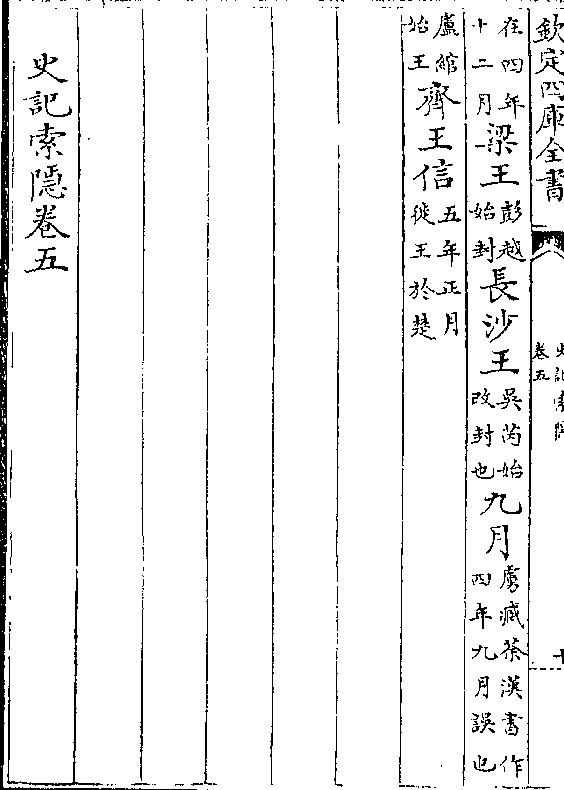 欽定四庫全書
史記索隱
卷五
在四年十二月梁王彭越始封長沙王吳芮始改封也九月虜臧荼漢書作四年九月誤也
盧綰始王齊王信五年正月徙王於楚
史記索隱卷五